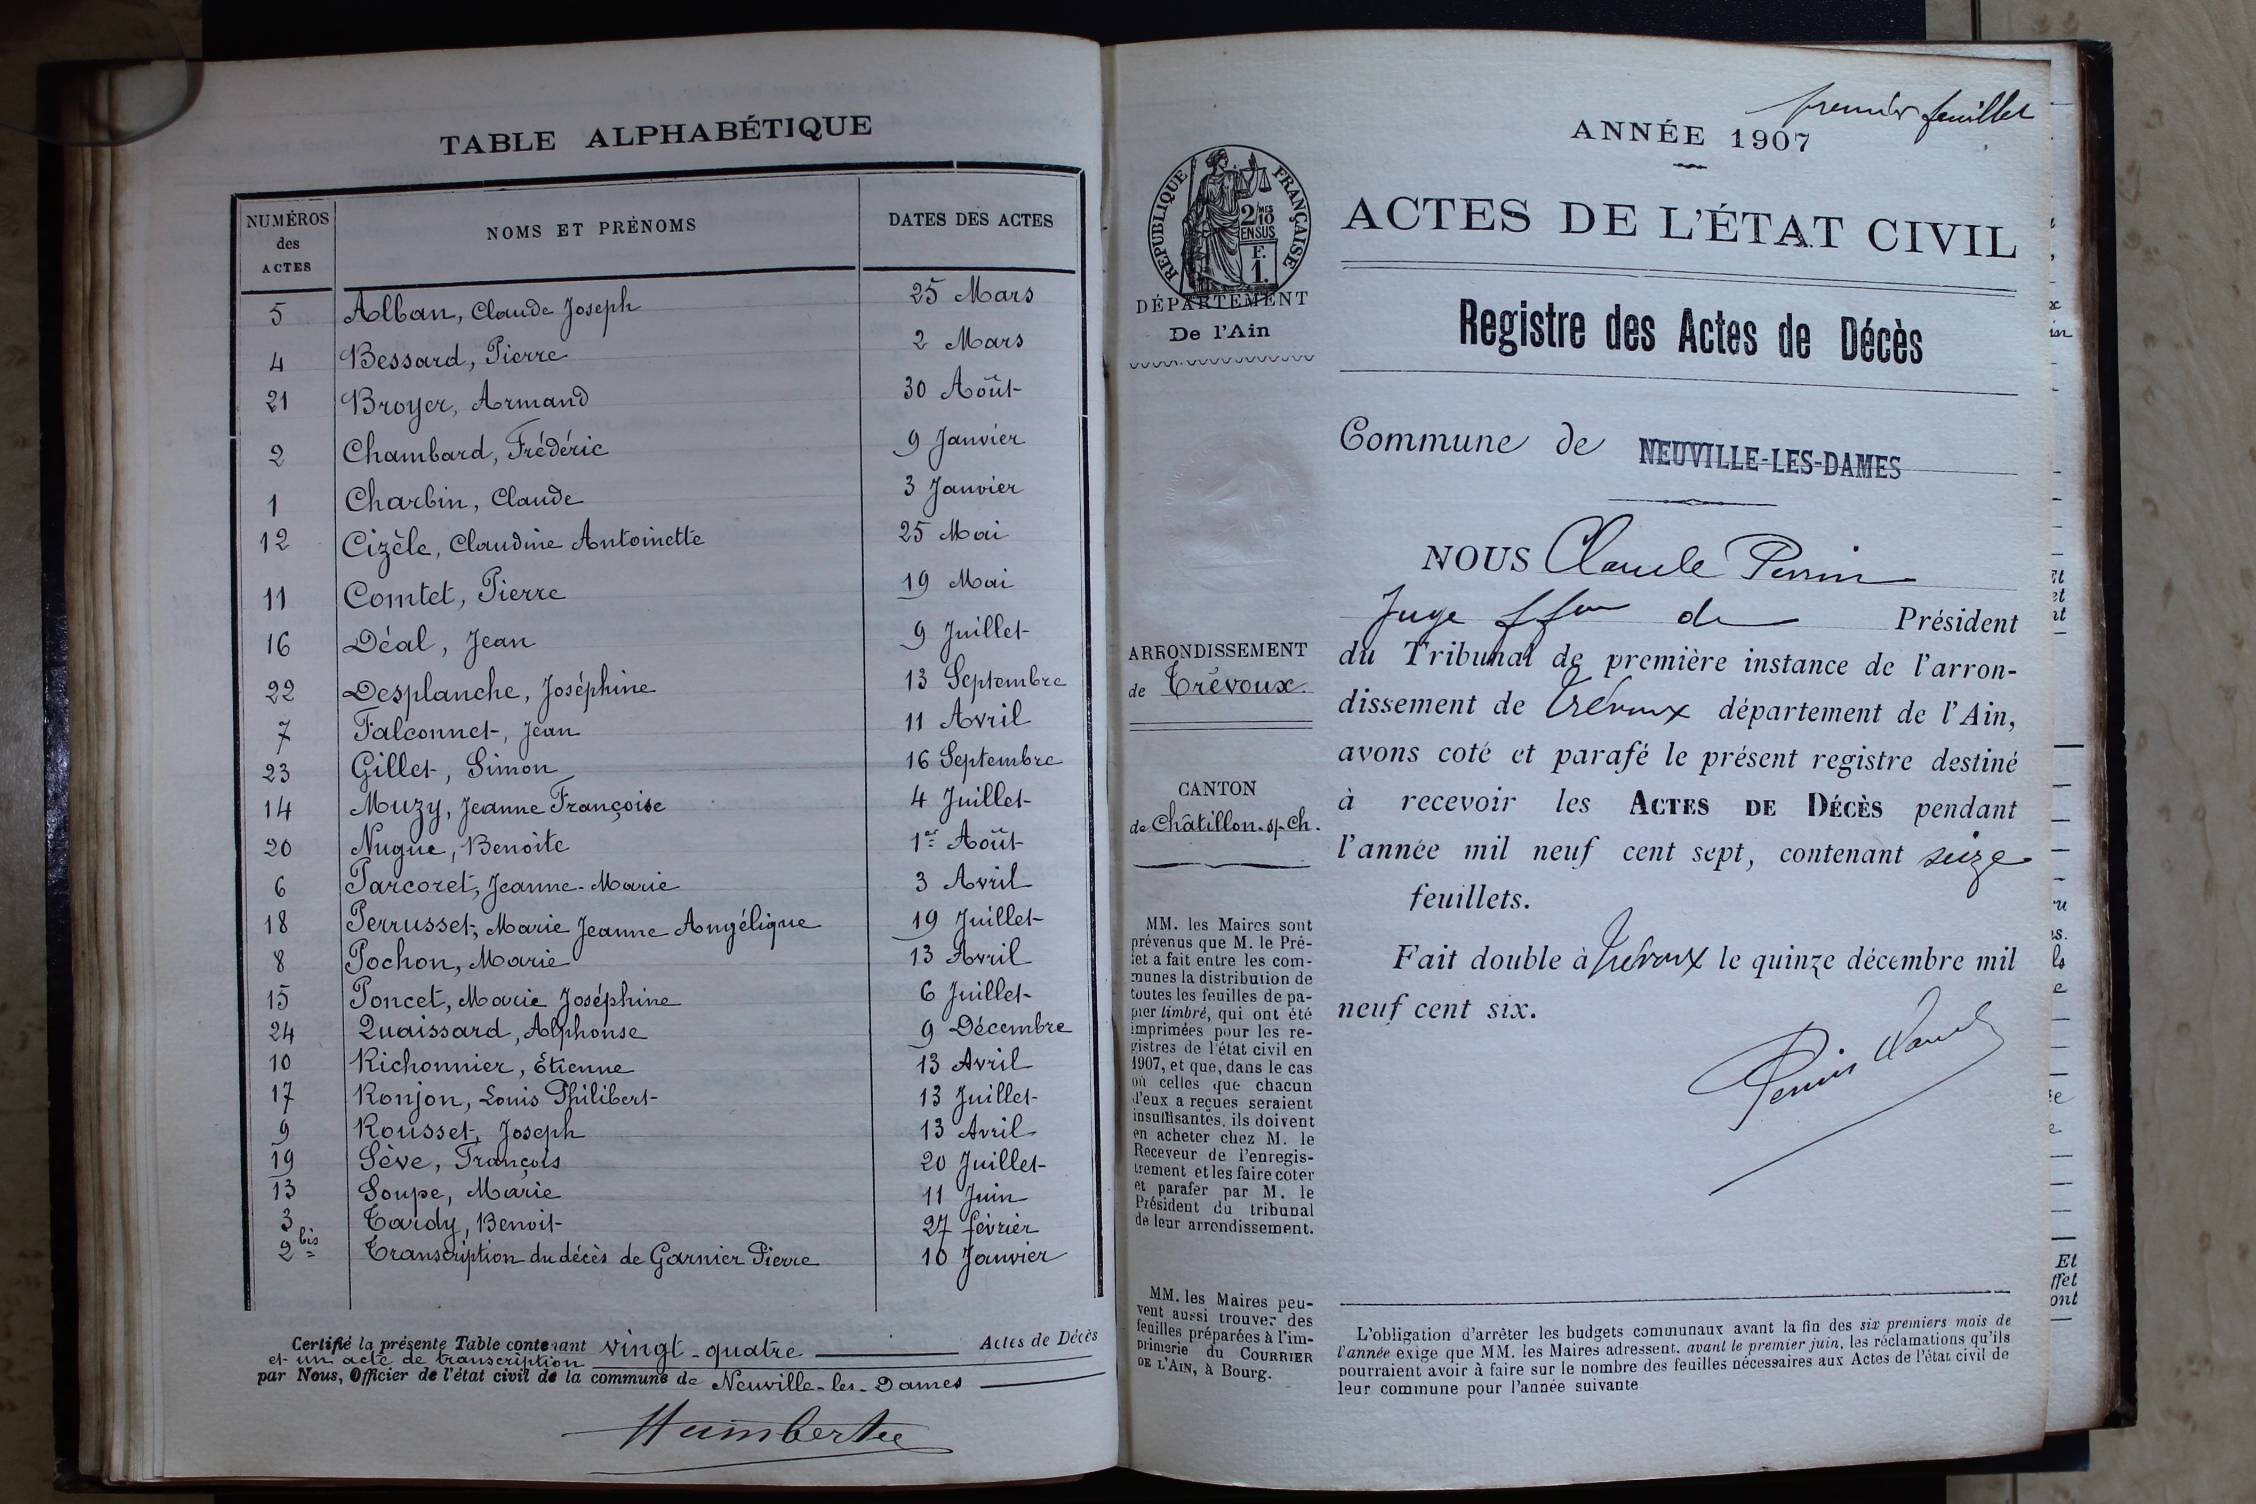 TABLE ALPHABÉTIQUE
NUMÉROS des ACTES NOMS ET PRÉNOMS DATES DES ACTES
5 Alban, Claude Joseph 25 Mars
4 Bessard, Pierre 2 Mars
21 Broyer, Armand 30 Août
2 Chambard, Frédéric 9 Janvier
1 Charbin, Claude 3 Janvier
12 Cizèle, Claudine Antoinette 25 Mai
11 Comtet, Pierre 19 Mai
16 Déal, Jean 9 Juillet
22 Desplanche, Joséphine 13 Septembre
7 Falconnet, Jean 11 Avril
23 Gillet, Simon 16 Septembre
14 Muzy, Jeanne Françoise 4 Juillet
20 Nugue, Benoite 1er Août
6 Parcoret, Jeanne-Marie 3 Avril
18 Perrusset, Marie Jeanne Angélique 19 Juillet
8 Pochon, Marie 13 Avril
15 Poncet, Marie Joséphine 6 Juillet
24 Quaissard, Alphonse 9 Décembre
10 Richonnier, Etienne 13 Avril
17 Ronjon, Louis Philibert 13 Juillet
9 Rousset, Joseph 13 Avril
19 Sève, François 20 Juillet
13 Soupe, Marie 11 Juin
3 Tardy, Benoit 27 février
2 bis Transcription du décès de Garnier Pierre 10 Janvier
Certifié la présente Table contenant vingt-quatre Actes de Décès
et un acte de transcription
par Nous, Officier de l'état civil de la commune de Neuville-les-Dames
premier feuillet
ANNÉE 1907
RÉPUBLIQUE FRANÇAISE
2/10 MES
EN SUS
F.
1.
DÉPARTEMENT
De l'Ain
ARRONDISSEMENT
de Trévoux.
CANTON
de Châtillon-s/-Ch.
MM. les Maires sont
prévenus que M. le Pré-
fet a fait entre les com-
munes la distribution de
toutes les feuilles de pa-
pier timbré, qui ont été
imprimées pour les re-
gistres de l'état civil en
1907, et que, dans le cas
où celles que chacun
d'eux a reçues seraient
insuffisantes, ils doivent
en acheter chez M. le
Receveur de l'enregis-
trement et les faire coter
et parafer par M. le
Président du tribunal
de leur arrondissement.
MM. les Maires peu-
vent aussi trouver des
feuilles préparées à l'im-
primerie du COURRIER
DE L'AIN, à Bourg.
ACTES DE L'ÉTAT CIVIL
Registre des Actes de Décès
Commune de NEUVILLE-LES-DAMES
NOUS Claude Perrin
Juge ffon de Président
du Tribunal de première instance de l'arron-
dissement de Trévoux département de l'Ain,
avons coté et parafé le présent registre destiné
à recevoir les ACTES DE DÉCÈS pendant
l'année mil neuf cent sept, contenant seize
feuillets.
Fait double à Trévoux le quinze décembre mil
neuf cent six.
L'obligation d'arrêter les budgets communaux avant la fin des six premiers mois de
l'année exige que MM. les Maires adressent, avant le premier juin, les réclamations qu'ils
pourraient avoir à faire sur le nombre des feuilles nécessaires aux Actes de l'état civil de
leur commune pour l'année suivante